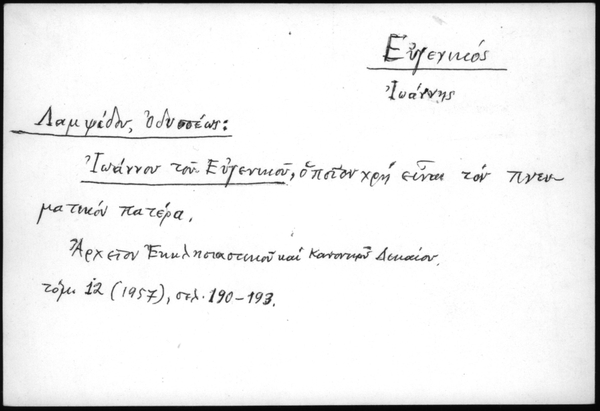 Εὐγενικός
Ἰωάννης
Λαμψίδου, Ὀδυσσέως:
Ἰωάννου τοῦ Εὐγενικοῦ, ὁποῖον χρή εἶναι τόν πνευ-
ματικόν πατέρα.
Ἀρχεῖον Ἐκκλησιαστικοῦ καί Κανονικοῦ Δικαίου.
τόμ. 12 (1957), σελ. 190-193.